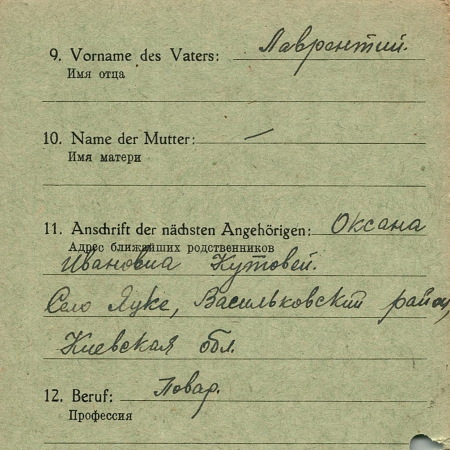 9. Vorname des Vaters: Лаврентий.
Имя отца
10. Name der Mutter: —
Имя матери
11. Anschrift der nächsten Angehörigen: Оксана
Адрес ближайших родственников
Ивановна Кутовей.
Село Яцке, Васильковский район,
Киевская обл.
12. Beruf: Повар.
Профессия